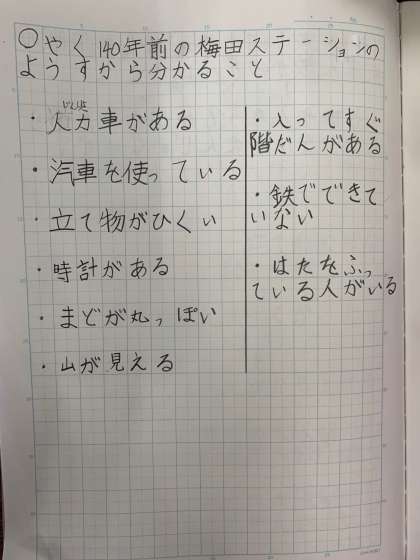 ○やく140年前の梅田ステーションの
ようすから分かること
・人力車がある
・汽車を使っている
・立て物がひくい
・時計がある
・まどが丸っぽい
・山が見える
・入ってすぐ
階だんがある
・鉄でできて
いない
・はたをふっ
ている人がいる